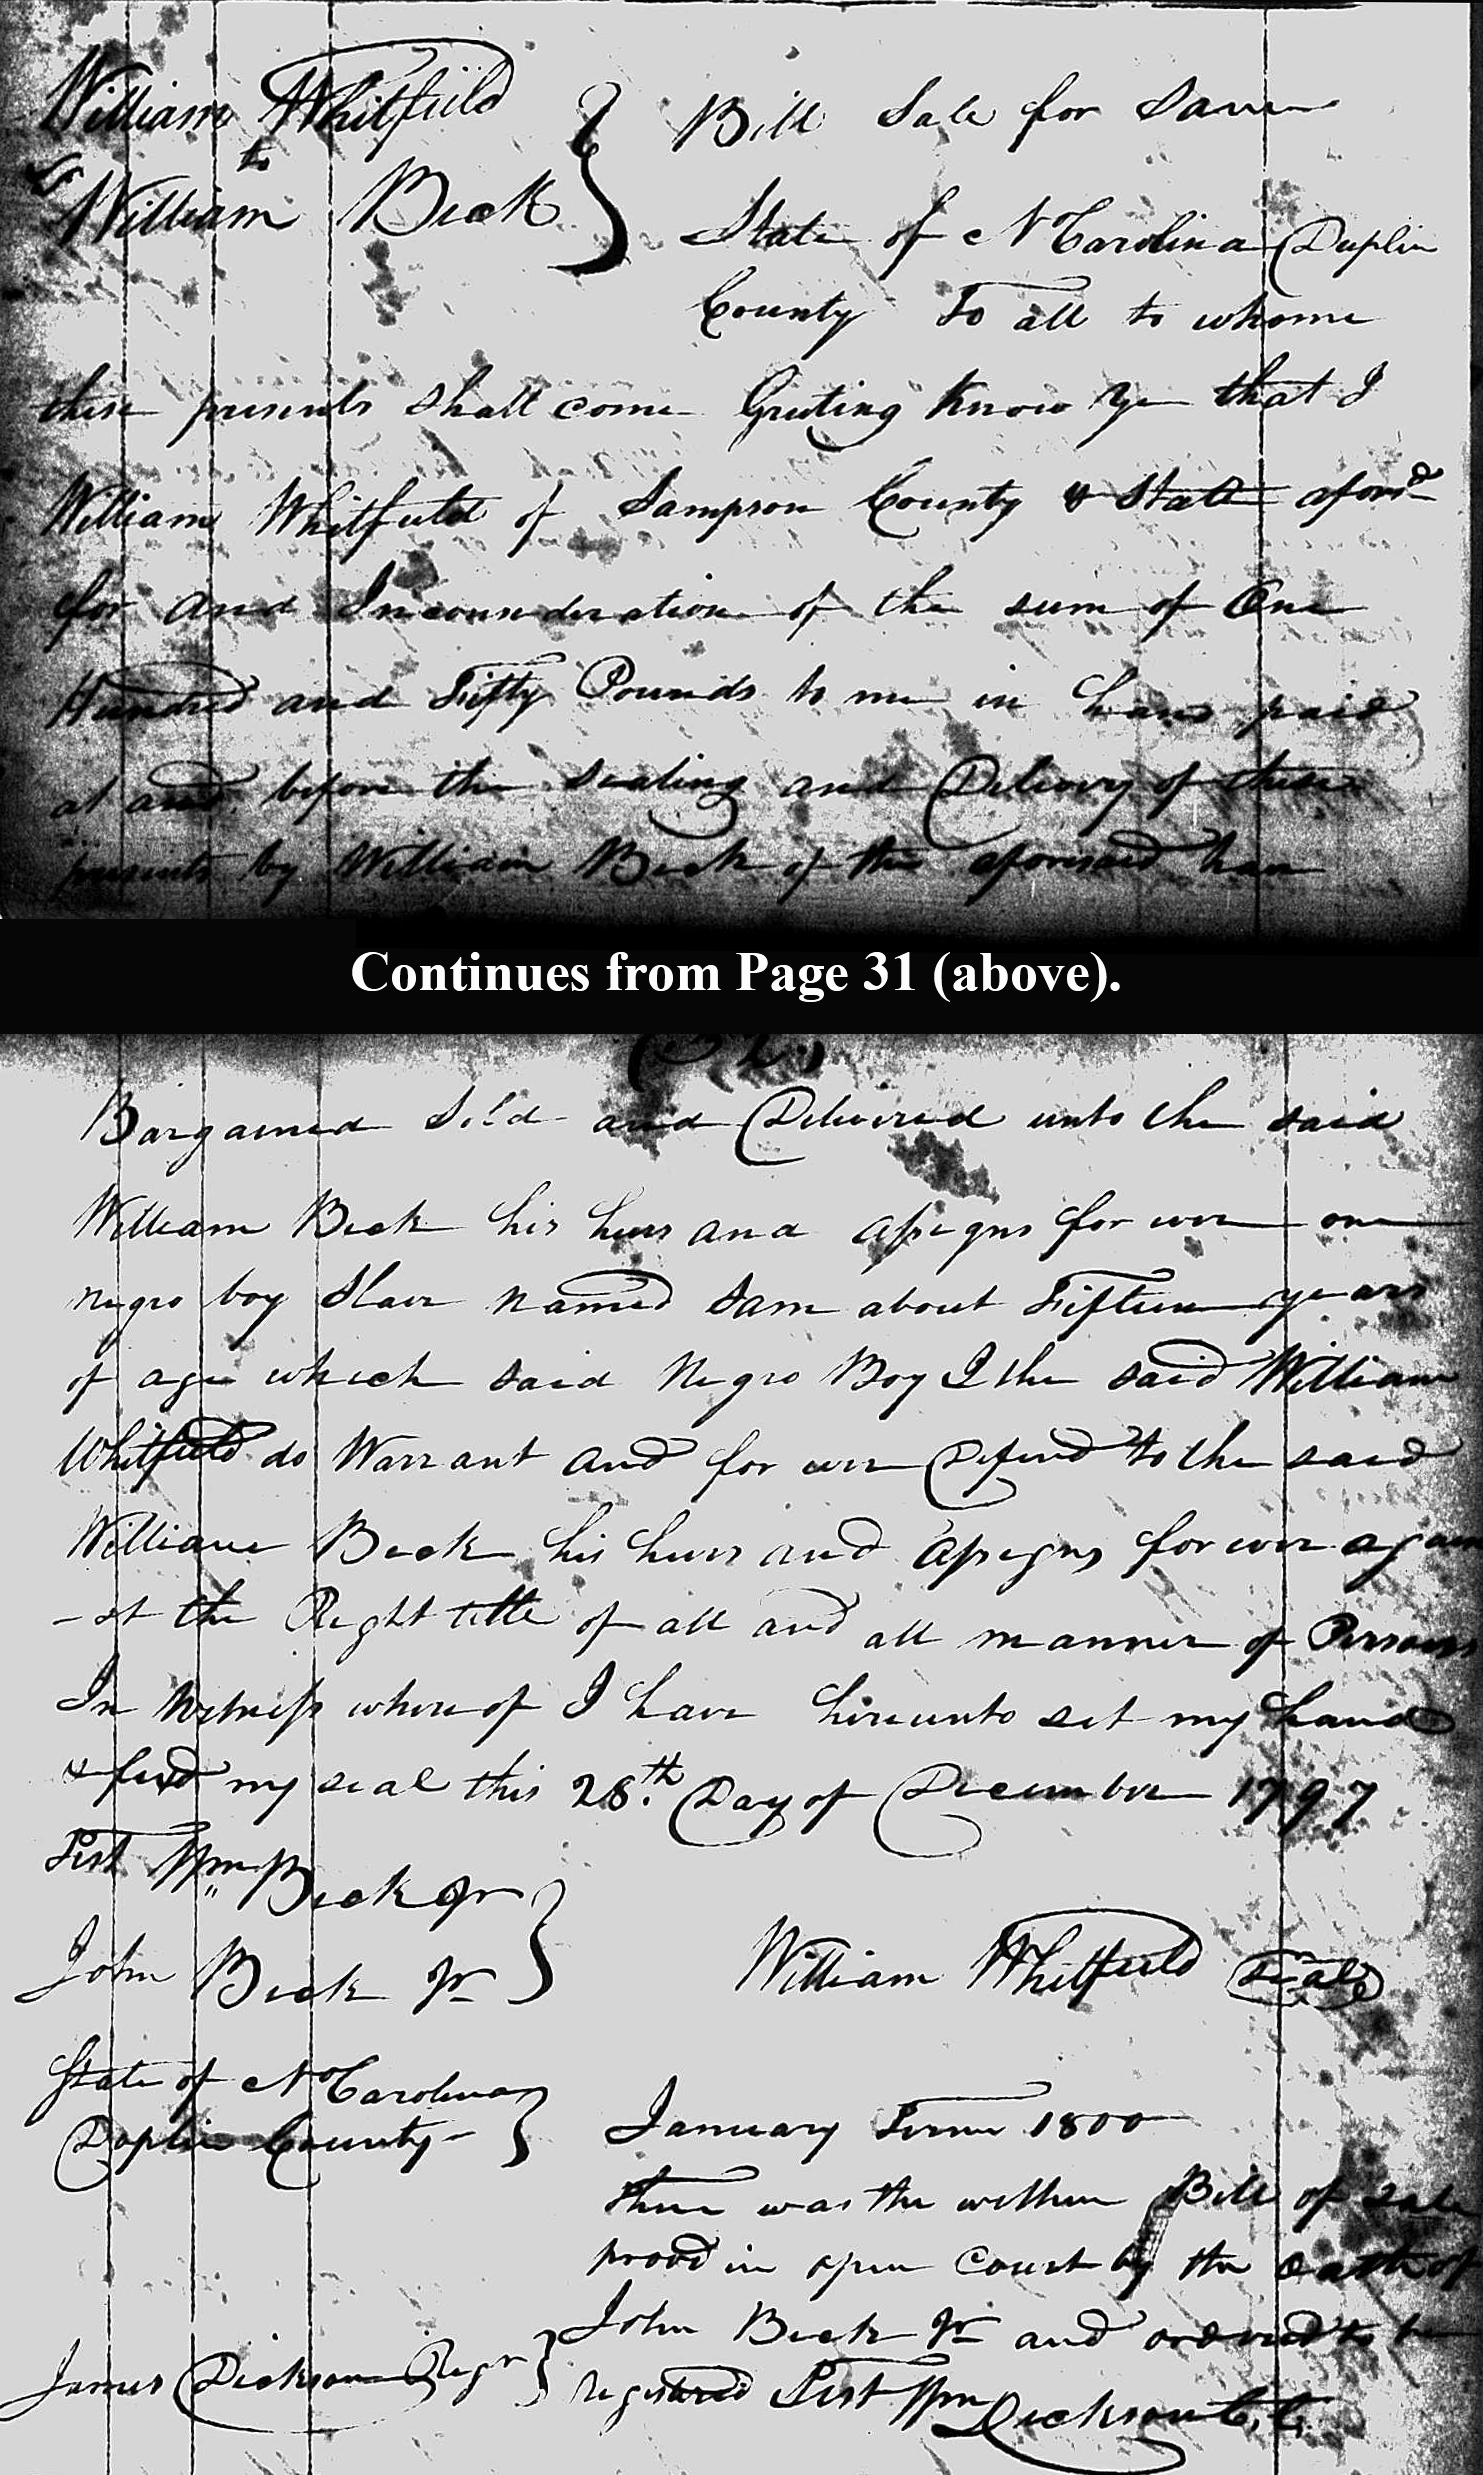 William Whitfield
to
William Beck
Bill Sale for Sam
State of N Carolina Duplin
County To all to whome
these presents shall come Greeting Know Ye that I
William Whitfield of Sampson County & State afors.d
for and Inconsideration of the sum of One
Hundred and Fifty Pounds to me in hand paid
at and before the sealing and Delivery of these
presents by William Beck of the aforesaid have
Continues from Page 31 (above).
(32.)
Bargained Sold and Delivered unto the said
William Beck his heirs and assigns for ever one
negro boy Slave named Sam about Fifteen years
of age which said Negro Boy I the said William
Whitfield do Warrant and for ever Defend to the said
William Beck his heirs and assigns for ever again
-st the Right title of all and all manner of Persons
In Witness whereof I have hereunto set my hand
& fixd my seal this 28.th Day of December 1797
Test Wm Beck Jr
John Beck Jr
William Whitfield Seal
State of N Carolina
Duplin County
January Term 1800
then was the within Bill of Sale
provd in open Court by the oath of
John Beck Jr and ordered to be
registered Test Wm Dickson C.C.
James Dickson Regr